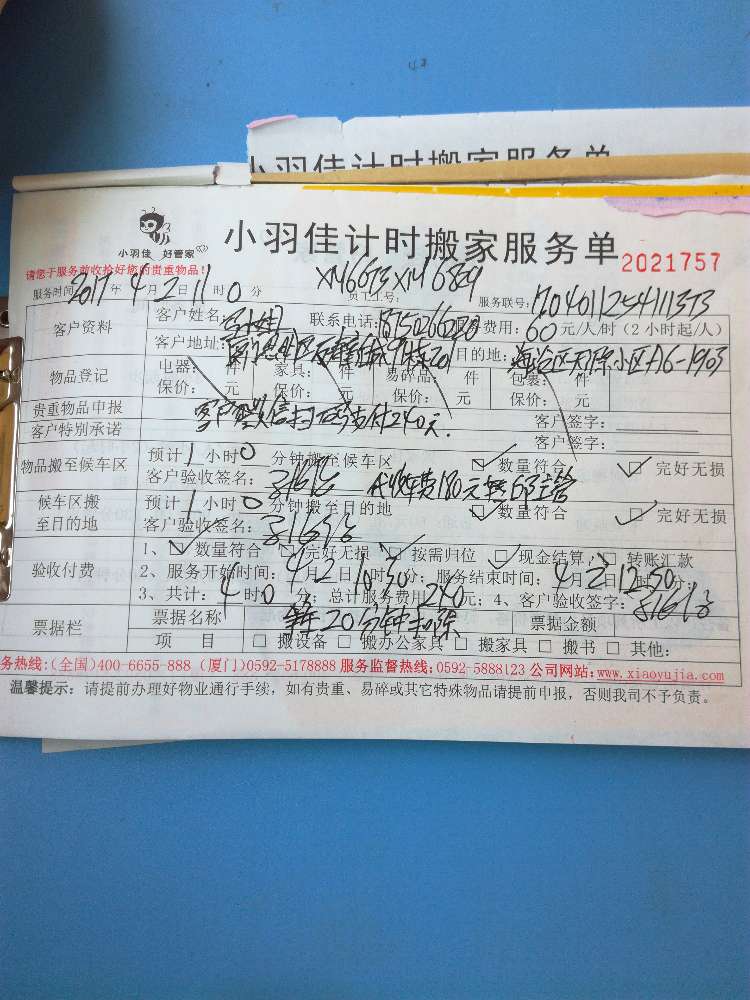 小羽佳计时搬家服务单
小羽佳 好管家
小羽佳计时搬家服务单 2021757
请您于服务前收拾好您的贵重物品！ XM6673 XM6829
服务时间：2017年4月2日11时0分 员工工号： 服务联号：170401125411373
客户资料 客户姓名： 联系电话： 服务费用：60元/人/时（2小时起/人）
客户地址： 目的地：海沧区天源小区A6-1903
物品登记 电器： 件 家具： 件 易碎品： 件 包裹： 件
保价： 元 保价： 元 保价： 元 保价： 元
贵重物品申报 客户签字：
客户微信扫码支付240元.
客户特别承诺 客户签字：
物品搬至候车区 预计1小时0分钟搬至候车区 数量符合 完好无损
客户验收签名： 代收车费180元整
候车区搬至目的地 预计1小时0分钟搬至目的地 数量符合 完好无损
客户验收签名：
验收付费 1、数量符合 完好无损 按需归位 现金结算， 转账汇款
2、服务开始时间：4月2日10时30分；服务结束时间：4月2日12时50分；
3、共计：4时0分；总计服务费用240元；4、客户验收签字：
票据栏 票据名称 20分钟扣除 票据金额
项 目 搬设备 搬办公家具 搬家具 搬书 其他：
务热线：(全国)400-6655-888 (厦门)0592-5178888 服务监督热线：0592-5888123 公司网站：www.xiaoyujia.com
温馨提示：请提前办理好物业通行手续，如有贵重、易碎或其它特殊物品请提前申报，否则我司不予负责。